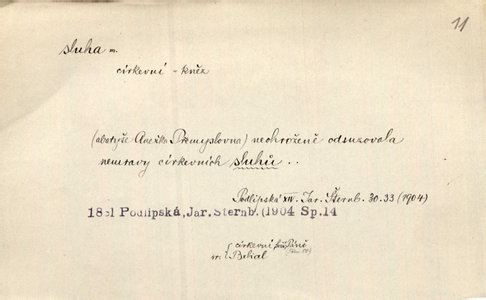 11
sluha m.
církevní - kněz
(abatyše Anežka Přemyslovna) neohroženě odsuzovala
nemravy církevních sluhů ..
Podlipská XIV. Jar. Šternb. 30.33 (1904)
18 1 Podlipská, Jar. Sternb. (1904 Sp. 14
církevní Páně
Belial